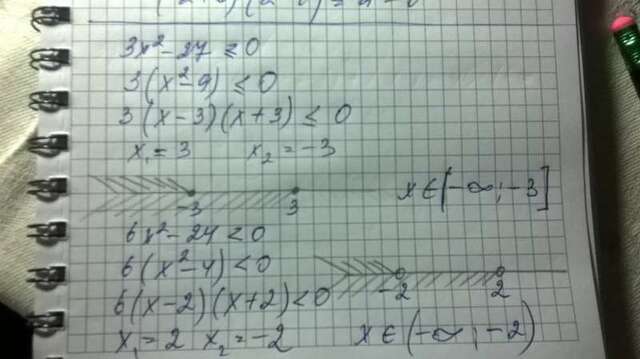 3x² - 27 ≤ 0
3(x² - 9) ≤ 0
3(x - 3)(x + 3) ≤ 0
x₁ = 3 x₂ = -3
-3 3 x ∈ [-∞; -3]
6x² - 24 < 0
6(x² - 4) < 0
-2 2
6(x - 2)(x + 2) < 0
x₁ = 2 x₂ = -2 x ∈ (-∞; -2)